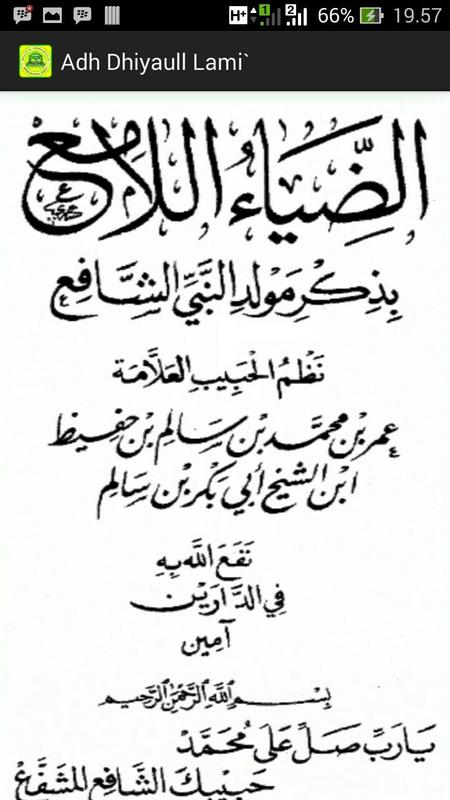 66% 19.57
Adh Dhiyaull Lami`
الضِّيَاءُ اللَّامِعُ
بِذِكْرِ مَوْلِدِ النَّبِيِّ الشَّافِعِ
نَظْمُ الْحَبِيبِ الْعَلَّامَة
عمر بْن محمَّد بْن سَالِم بْن حفِيظ
ابْن الشيخ أبي بَكْر بْن سَالِم
نَفَعَ اللَّه بِهِ
فِي الدَّارَيْن
آمِين
بِسْمِ اللَّهِ الرَّحْمَنِ الرَّحِيمِ
يَارَبِّ صَلِّ عَلَى مُحَمَّدْ
حَبِيبِكَ الشَّافِعِ المُشَفَّعْ